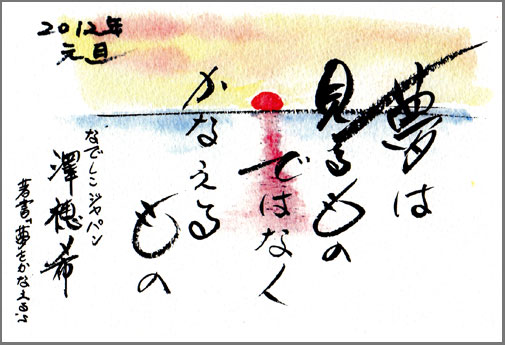 夢は
見るもの
ではなく
かなえる
もの
なでしこジャパン
澤穂希
著書"夢をかなえる"
2012年
元旦